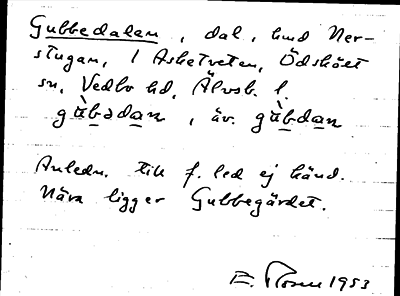 Gubbedalen, dal, hmd Ner-
stugan, 1 Asketveten, Ödskölt
sn, Vedbo hd, Älvsb. l.
gùbədan, äv. gùbdan
Anledn. till f. led ej känd.
Nära ligger Gubbegärdet.
E. Rosen 1953